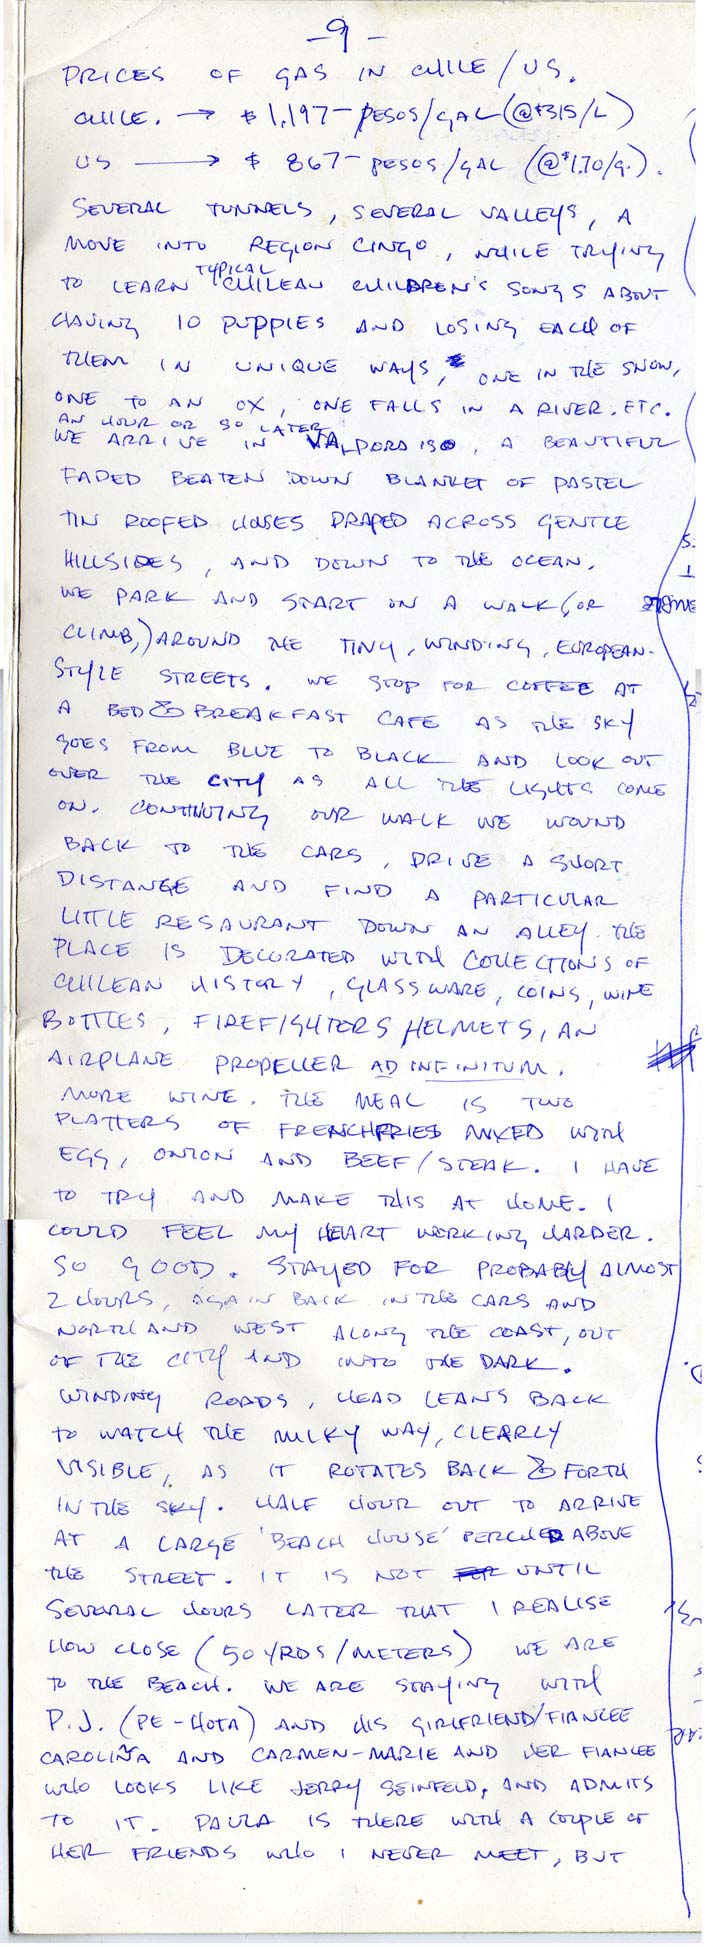 -9-
PRICES OF GAS IN CHILE/US.
CHILE. → $1,197- PESOS/GAL (@$315/L)
US → $ 867- PESOS/GAL (@$1.70/g.).
SEVERAL TUNNELS, SEVERAL VALLEYS, A
MOVE INTO REGION CINGO, WHILE TRYING
TO LEARN TYPICAL CHILEAN CHILDREN'S SONGS ABOUT
HAVING 10 PUPPIES AND LOSING EACH OF
THEM IN UNIQUE WAYS, ONE IN THE SNOW,
ONE TO AN OX, ONE FALLS IN A RIVER. ETC.
AN HOUR OR SO LATER
WE ARRIVE IN VALPORAISO, A BEAUTIFUL
FADED BEATEN DOWN BLANKET OF PASTEL
TIN ROOFED HOUSES DRAPED ACROSS GENTLE
HILLSIDES, AND DOWN TO THE OCEAN.
WE PARK AND START ON A WALK (OR
CLIMB,) AROUND THE TINY, WINDING, EUROPEAN-
STYLE STREETS. WE STOP FOR COFFEE AT
A BED & BREAKFAST CAFE AS THE SKY
GOES FROM BLUE TO BLACK AND LOOK OUT
OVER THE CITY AS ALL THE LIGHTS COME
ON. CONTINUING OUR WALK WE WOUND
BACK TO THE CARS, DRIVE A SHORT
DISTANGE AND FIND A PARTICULAR
LITTLE RESAURANT DOWN AN ALLEY. THE
PLACE IS DECORATED WITH COLLECTIONS OF
CHILEAN HISTORY, GLASSWARE, COINS, WINE
BOTTLES, FIREFIGHTERS HELMETS, AN
AIRPLANE PROPELLER AD INFINITUM.
MORE WINE. THE MEAL IS TWO
PLATTERS OF FRENCHFRIES MIXED WITH
EGG, ONION AND BEEF/STEAK. I HAVE
TO TRY AND MAKE THIS AT HOME. I
COULD FEEL MY HEART WORKING HARDER.
SO GOOD. STAYED FOR PROBABLY ALMOST
2 HOURS, AGAIN BACK IN THE CARS AND
NORTH AND WEST ALONG THE COAST, OUT
OF THE CITY AND INTO THE DARK.
WINDING ROADS, HEAD LEANS BACK
TO WATCH THE MILKY WAY, CLEARLY
VISIBLE, AS IT ROTATES BACK & FORTH
IN THE SKY. HALF HOUR OUT TO ARRIVE
AT A LARGE 'BEACH HOUSE' PERCHED ABOVE
THE STREET. IT IS NOT UNTIL
SEVERAL HOURS LATER THAT I REALISE
HOW CLOSE (50 YRDS/METERS) WE ARE
TO THE BEACH. WE ARE STAYING WITH
P.J. (PE-HOTA) AND HIS GIRLFRIEND/FIANCEE
CAROLIÑA AND CARMEN-MARIE AND HER FIANCEE
WHO LOOKS LIKE JERRY SEINFELD, AND ADMITS
TO IT. PAULA IS THERE WITH A COUPLE OF
HER FRIENDS WHO I NEVER MEET, BUT